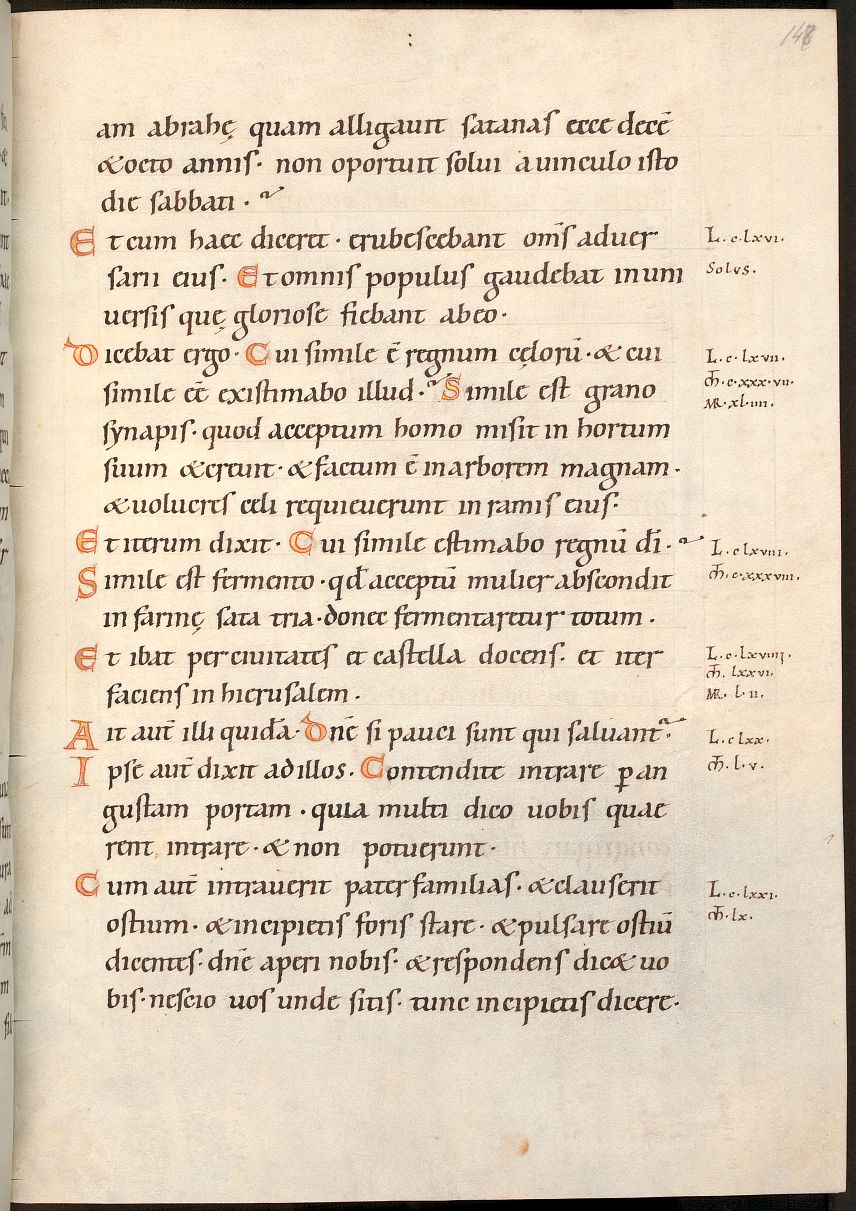 148
am abrahę quam alligauit satanas ecce decē
&octo annis· non oportuit solui a uinculo isto
die sabbati·
Et cum haec diceret· erubescebant om̄s aduer
sarii eius. Et omnis populus gaudebat in uni
uersis quę gloriose fiebant ab eo·
Dicebat ergo· Cui simile ē regnum cęlorū· & cui
simile eē existimabo illud· Simile est grano
synapis· quod acceptum homo misit in hortum
suum &creuit· &factum ē in arborem magnam·
&uolucres celi requieuerunt in ramis eius·
Et iterum dixit· Cui simile estimabo regnū dī·
Simile est fermento· qd̄ acceptū mulier abscondit
in farinę sata tria· donec fermentaretur totum·
Et ibat per ciuitates et castella docens· et iter
faciens in hierusalem·
Ait aut̄ illi quidā· Dn̄e si pauci sunt qui saluant᷑·
Ipse aut̄ dixit ad illos· Contendite intrare ꝑ an
gustam portam· quia multi dico uobis quae
rent intrare· & non potuerunt·
Cum aut̄ intrauerit pater familias· &clauserit
ostium· &incipietis foris stare· &pulsare ostiū
dicentes· dn̄e aperi nobis· &respondens dic& uo
bis· nescio uos unde sitis· tunc incipietis dicere·
L·c·lxvi·
Solus·
L·c·lxvii·
m̄·c·xxx·vii·
MR·xl·iiii·
L·c·lxviii·
m̄·c·xxxviii·
L·c·lxviiii·
m̄·lxxvi·
MR·l·ii·
L·c·lxx·
m̄·l·v·
L·c·lxxi·
m̄·lx·